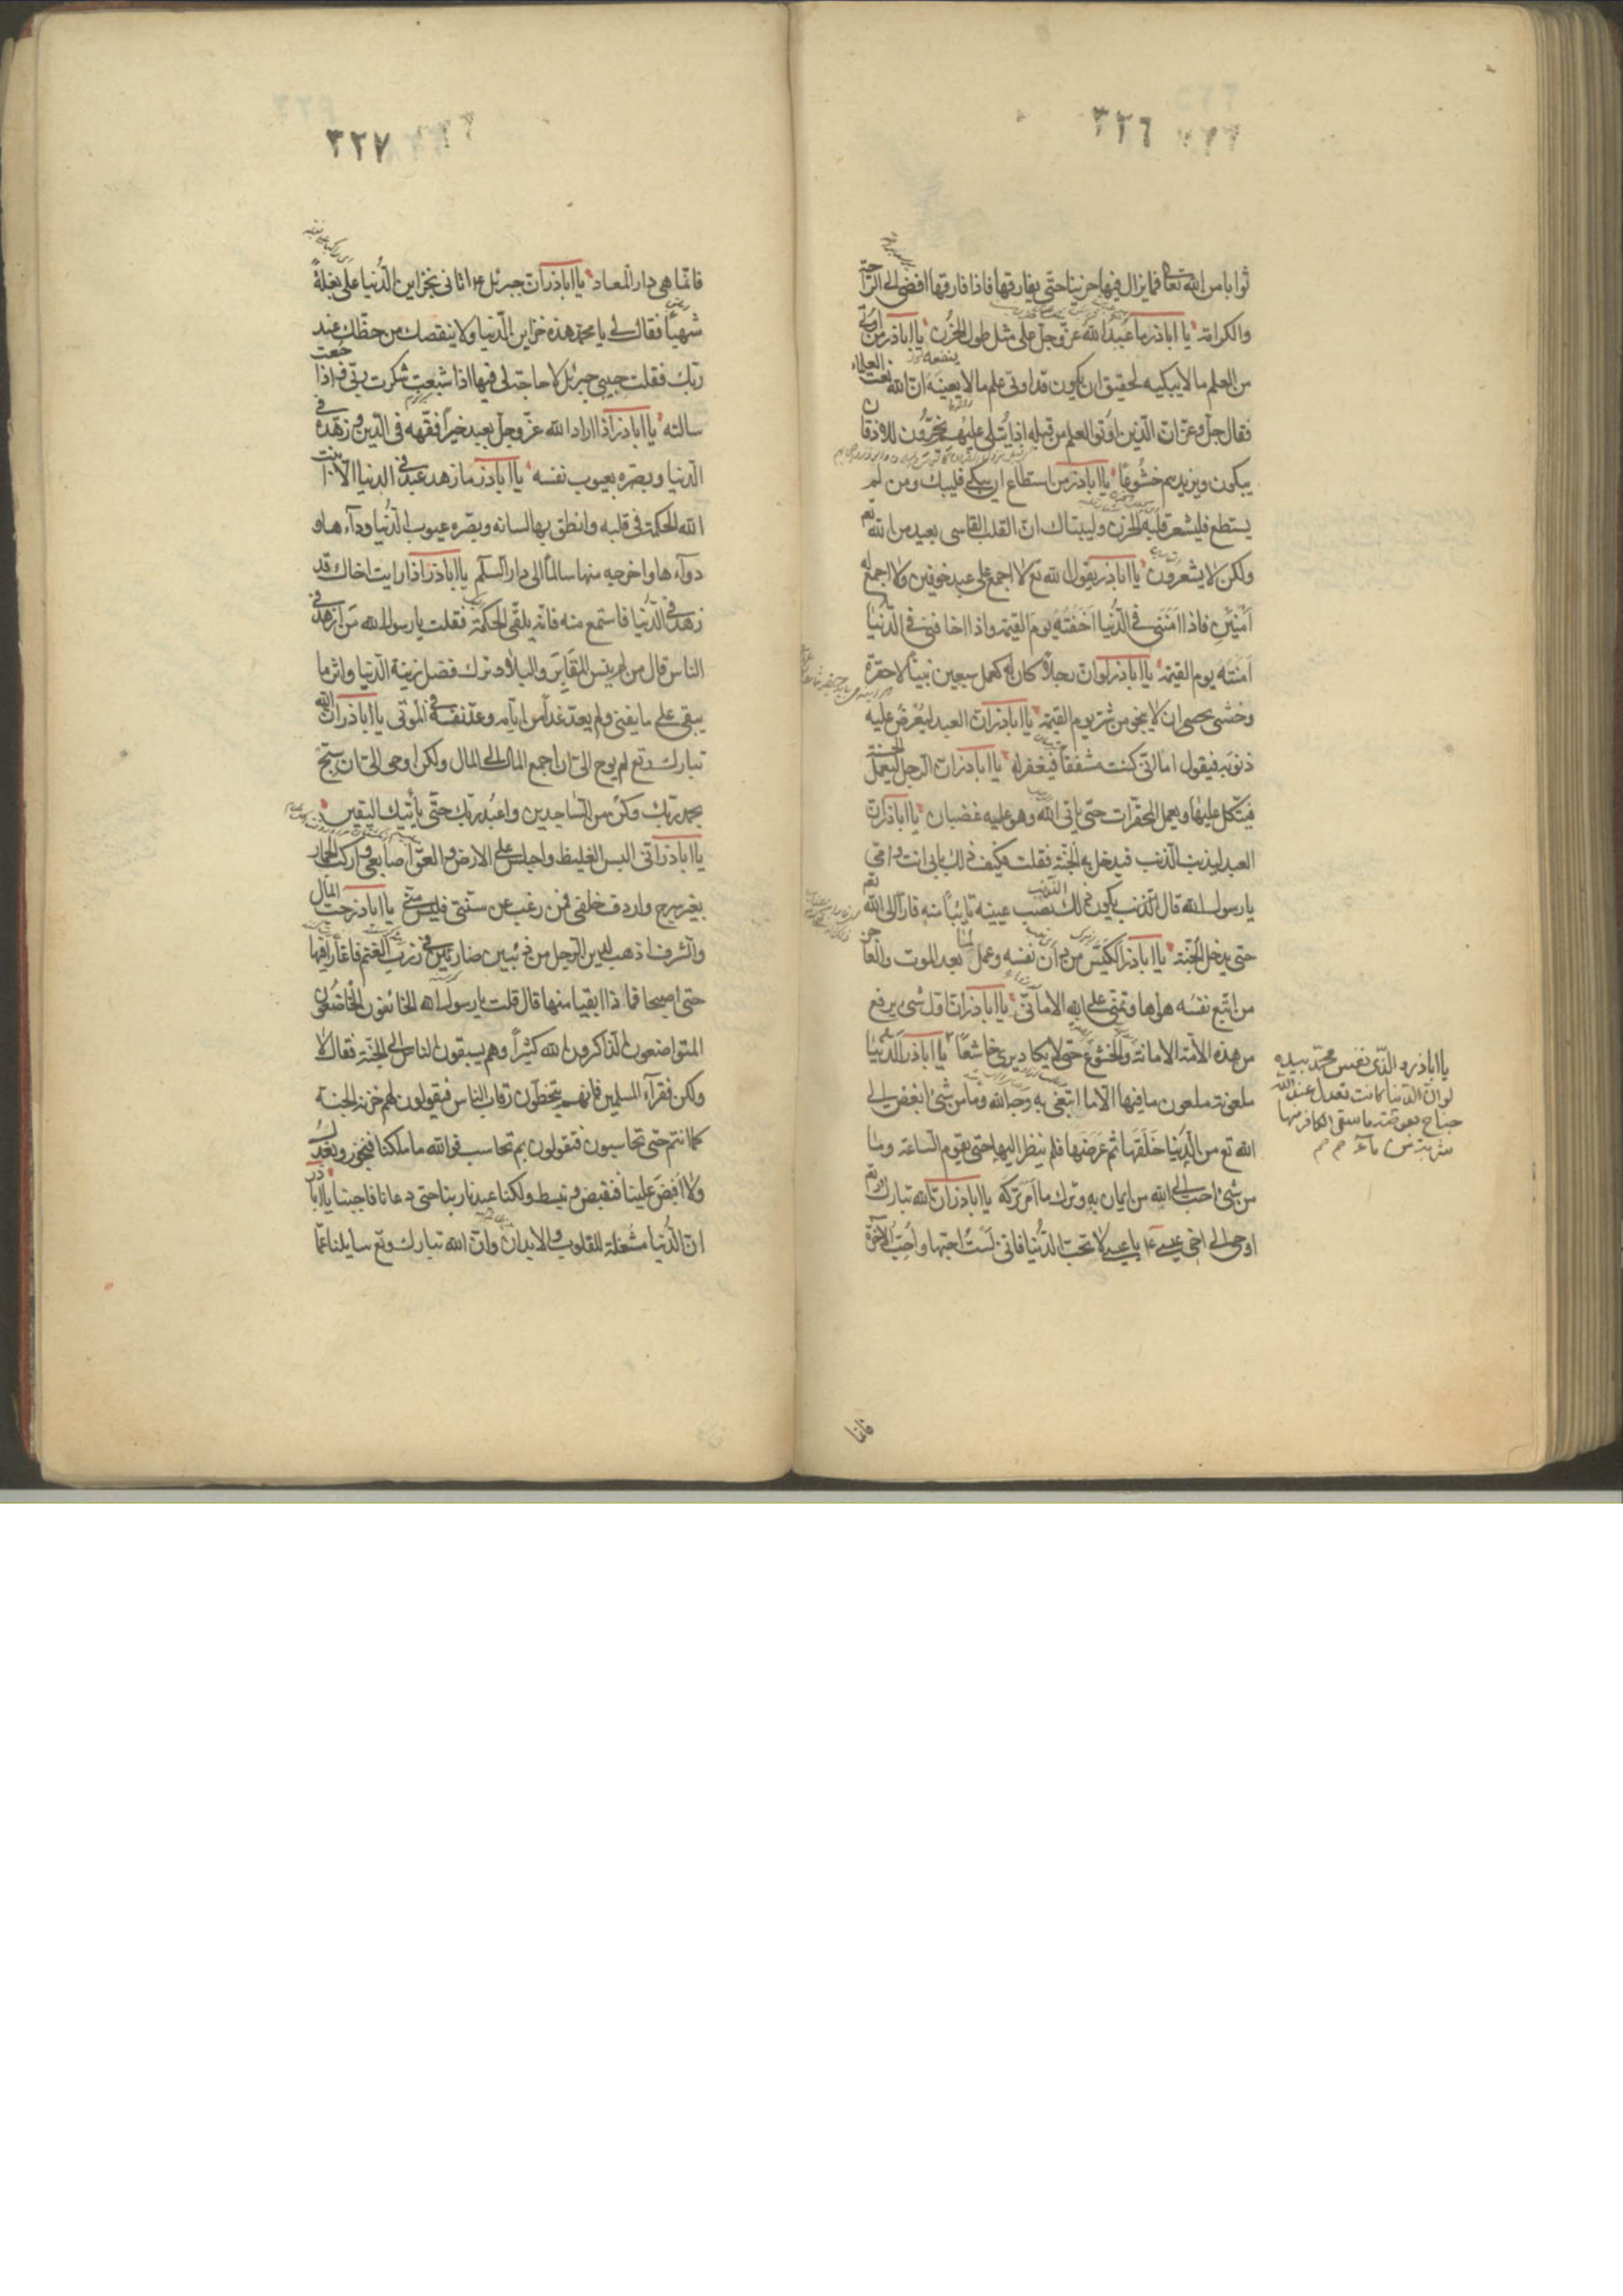 ٣٢٦
ثوابا من الله تعا فما يزال فيها حزينا حتى يفارقها فاذا فارقها افضى الى الراحة
والكرامة يا اباذر ما عبد الله عز وجل على مثل طول الحزن يا اباذر من اوتى
من العلم ما لا يبكيه لحقيق ان يكون قد اوتى علم ما لا ينفعه ان الله نعت العلماء
فقال جل وعز ان الذين اوتوا العلم من قبله اذا يتلى عليهم يخرون للاذقان
يبكون ويزيدهم خشوعا يا اباذر من استطاع ان يبكى فليبك ومن لم
يستطع فليشعر قلبه الحزن وليتباك ان القلب القاسى بعيد من الله تع
ولكن لا يشعرون يا اباذر يقول الله تع لا اجمع على عبد خوفين ولا اجمع له
امنين فاذا امننى فى الدنيا اخفته يوم القيمة واذا خافنى فى الدنيا
امنته يوم القيمة يا اباذر لو ان رجلا كان له كعمل سبعين نبيا لاحتقره
وخشى ان لا ينجو من شر يوم القيمة يا اباذر ان العبد ليعرض عليه
ذنوبه فيقول اما انى كنت مشفقا فيغفر له يا اباذر ان الرجل ليعمل الحسنة
فيتكل عليها ويعمل المحقرات حتى ياتى الله وهو عليه غضبان يا اباذر ان
العبد ليذنب الذنب فيدخل به الجنة فقلت وكيف ذلك بابى انت وامى
يا رسول الله قال يكون ذلك الذنب نصب عينيه تائبا منه فارا الى الله تع
حتى يدخل الجنة يا اباذر الكيس من دان نفسه وعمل لما بعد الموت والعاجز
من اتبع نفسه هواها وتمنى على الله الامانى يا اباذر ان اول شئ يرفع
من هذه الامة الامانة والخشوع حتى لا يكاد يرى خاشعا يا اباذر الدنيا
ملعونة ملعون ما فيها الا ما ابتغى به وجه الله وما من شئ ابغض الى
الله تع من الدنيا خلقها ثم عرضها فلم ينظر اليها حتى يقوم الساعة وما
من شئ احب الى الله من ايمان به وترك ما امر بتركه يا اباذر ان الله تبارك وتع
اوحى الى اخى عيسى ع يا عيسى لا تحب الدنيا فانى لست احبها واحب الاخرة
يا اباذر والذى نفس محمد بيده
لو ان الدنيا كانت تعدل عند الله
جناح بعوضة ما سقى الكافر منها
شربة من ماء
فانما
٣٢٧
فانما هى دار المعاد يا اباذر ان جبرئيل ع اتانى بخزاين الدنيا على بغلة
شهبا فقال لى يا محمد هذه خزاين الدنيا ولا ينقصك من حظك عند
ربك فقلت حبيبى جبرئيل لا حاجة لى فيها اذا شبعت شكرت ربى واذا جعت
سالته يا اباذر اذا اراد الله عز وجل بعبد خيرا فقهه فى الدين وزهده فى
الدنيا وبصره بعيوب نفسه يا اباذر ما زهد عبد فى الدنيا الا انبت
الله الحكمة فى قلبه وانطق بها لسانه وبصره عيوب الدنيا وداءها و
دواءها واخرجه منها سالما الى دار السلم يا اباذر اذا رايت اخاك قد
زهد فى الدنيا فاستمع منه فانه يلقى الحكمة فقلت يا رسول الله من ازهد
الناس قال من لم ينس المقابر والبلا وترك فضل زينة الدنيا واثر ما
يبقى على ما يفنى ولم يعد غدا من ايامه وعد نفسه فى الموتى يا اباذر ان الله
تبارك وتع لم يوح الى ان اجمع المال الى المال ولكن اوحى الى ان سبح
بحمد ربك وكن من الساجدين واعبد ربك حتى يأتيك اليقين
يا اباذر انى البس الغليظ واجلس على الارض والعق اصابعى واركب الحمار
بغير سرج واردف خلفى فمن رغب عن سنتى فليس منى يا اباذر حب المال
والشرف اذهب لدين الرجل من ذئبين ضاريين فى زرب الغنم فاغارا فيها
حتى اصبحا فماذا ابقيا منها قال قلت يا رسول الله الخائفون الخاضعون
المتواضعون الذاكرون الله كثيرا وهم يسبقون الناس الى الجنة فقال لا
ولكن فقرآء المسلمين فانهم يتخطون رقاب الناس فيقولون لهم خزنة الجنة
كما انتم حتى تحاسبون فيقولون بم نحاسب فوالله ما ملكنا فنجور ونعدل
ولا افيض علينا فنقبض ونبسط ولكنا عبدنا ربنا حتى دعانا فاجبنا يا اباذر
ان الدنيا مشغلة للقلوب والابدان وان الله تبارك وتع سايلنا عما